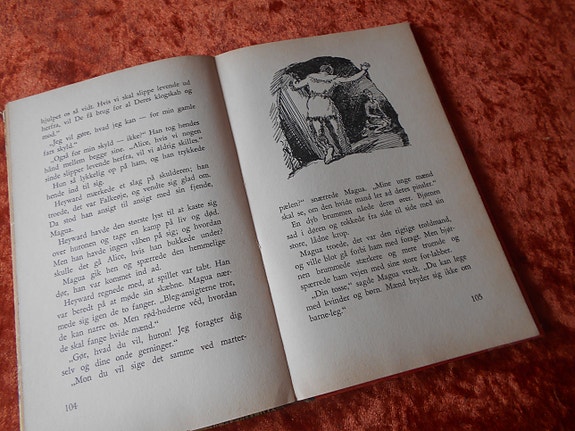 hjulpet os så vidt. Hvis vi skal slippe levende ud
herfra, vil De få brug for al Deres klogskab og
mod.“
„Jeg vil gøre, hvad jeg kan — for min gamle
fars skyld.“
„Også for min skyld — ikke?“ Han tog hendes
hånd mellem begge sine. „Alice, hvis vi nogen
sinde slipper levende herfra, vil vi aldrig skilles.“
Hun så lykkelig op på ham, og han trykkede
hende ind til sig.
Heyward mærkede et slag på skulderen; han
troede, det var Falkeøje, og vendte sig glad om.
Da stod han ansigt til ansigt med sin fjende,
Magua.
Heyward havde den største lyst til at kaste sig
over huronen og tage en kamp på liv og død.
Men han havde ingen våben på sig; og hvordan
skulle det gå Alice, hvis han bukkede under?
Magua gik hen og spærrede den hemmelige
dør, han var kommet ind ad.
Heyward regnede med, at spillet var tabt. Han
var beredt på at møde sin skæbne. Magua nær-
mede sig igen de to fanger. „Bleg-ansigterne tror,
de kan narre os. Men rød-huderne véd, hvordan
de skal fange hvide mænd.“
„Gør, hvad du vil, huron! Jeg foragter dig
selv og dine onde gerninger.“
„Mon du vil sige det samme ved marter-
104
pælen?“ snærrede Magua. „Mine unge mænd
skal se, om den hvide mand ler ad deres pinsler.“
En dyb brummen nlede deres ører. Bjørnen
sad i døren og rokkede fra side til side med sin
store, lådne krop.
Magua troede, det var den rigtige troldmand,
og ville blot gå forbi ham med foragt. Men bjør-
nen brummede stærkere og mere truende og
spærrede ham vejen med sine store for-labber.
„Din tosse,“ sagde Magua vredt. „Du kan lege
med kvinder og børn. Mænd bryder sig ikke om
barne-leg.“
105